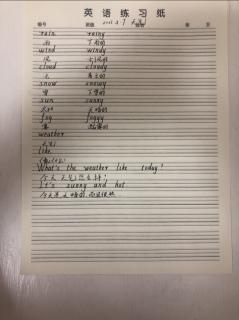 英语练习纸
编号 班级 姓名 第 页
rain rainy
雨 下雨的
wind windy
风 有风的
cloud cloudy
云 多云的
snow snowy
雪 下雪的
sun sunny
太阳 晴的
fog foggy
雾
weather
天气
like
What's the weather like today?
今天天气怎么样?
It's sunny and hot
今天是 晴的,而且很热